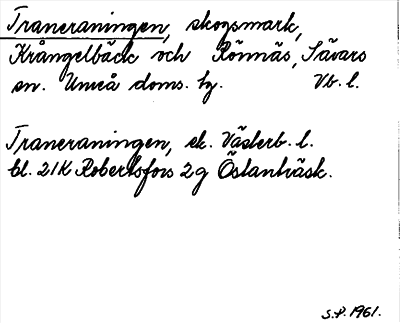 Traneraningen, skogsmark,
Krångelbäck och Rönnäs, Sävars
sn. Umeå doms. hg. Vb. l.
Traneraningen, ek. Västerb. l.
bl. 21K Robertsfors 2g Östanträsk.
S.P. 1961.